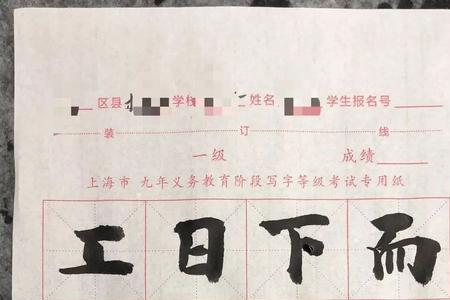 区县 学校 姓名 学生报名号
装 订 线
一级 成绩
上海市 九年义务教育阶段写字等级考试专用纸
工日下而